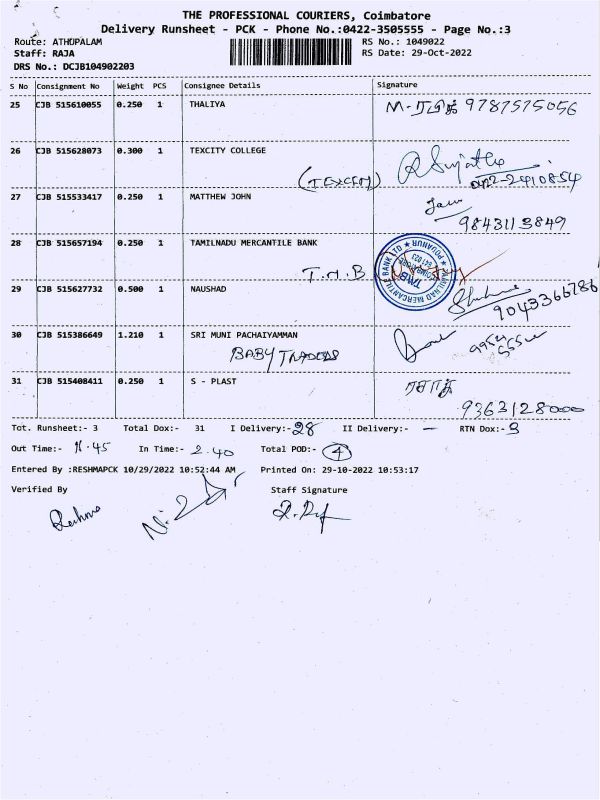 THE PROFESSIONAL COURIERS, Coimbatore
Delivery Runsheet - PCK - Phone No.:0422-3505555 - Page No.:3
Route: ATHUPALAM RS No.: 1049022
Staff: RAJA RS Date: 29-Oct-2022
DRS No.: DCJB104902203
S No Consignment No Weight PCS Consignee Details Signature
25 CJB 515610055 0.250 1 THALIYA 9787575056
26 CJB 515628073 0.300 1 TEXCITY COLLEGE
(TEXCITY) 0422-2410854
27 CJB 515533417 0.250 1 MATTHEW JOHN
9843113849
28 CJB 515657194 0.250 1 TAMILNADU MERCANTILE BANK
T.M.B
29 CJB 515627732 0.500 1 NAUSHAD
9043366786
30 CJB 515386649 1.210 1 SRI MUNI PACHAIYAMMAN
BABY TRADERS
31 CJB 515408411 0.250 1 S - PLAST
9363128000
Tot. Runsheet:- 3 Total Dox:- 31 I Delivery:- 28 II Delivery:- — RTN Dox:- 3
Out Time:- 11.45 In Time:- 2.40 Total POD:- 4
Entered By :RESHMAPCK 10/29/2022 10:52:44 AM Printed On: 29-10-2022 10:53:17
Verified By Staff Signature